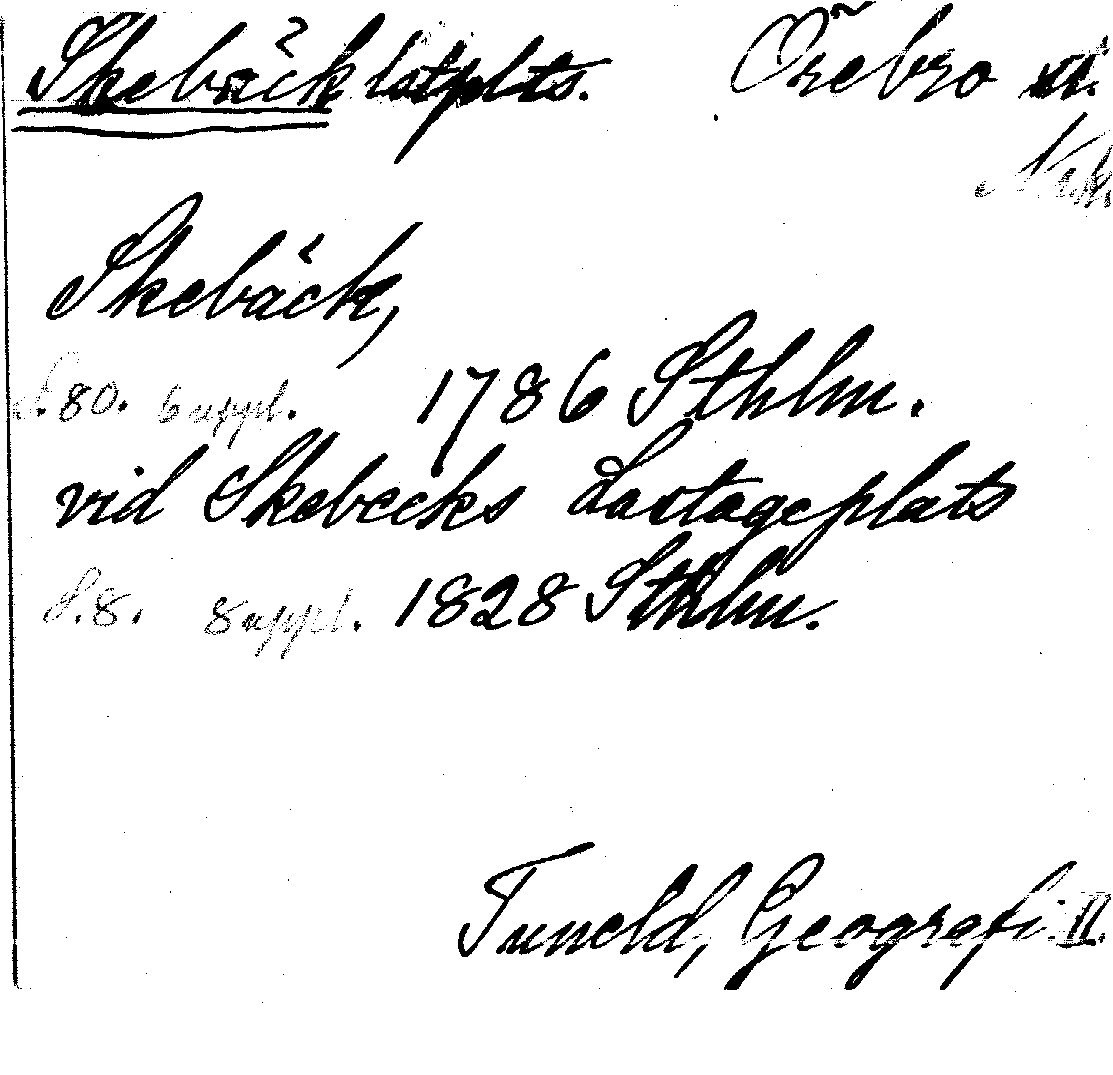 Skebäck lastplts. Örebro st.
Nrk.
Skebäck,
S. 80. Suppl. 1786 Sthlm.
vid Skebecks Lastageplats
S. 8. Suppl. 1828 Sthlm.
Tuneld, Geografi II.